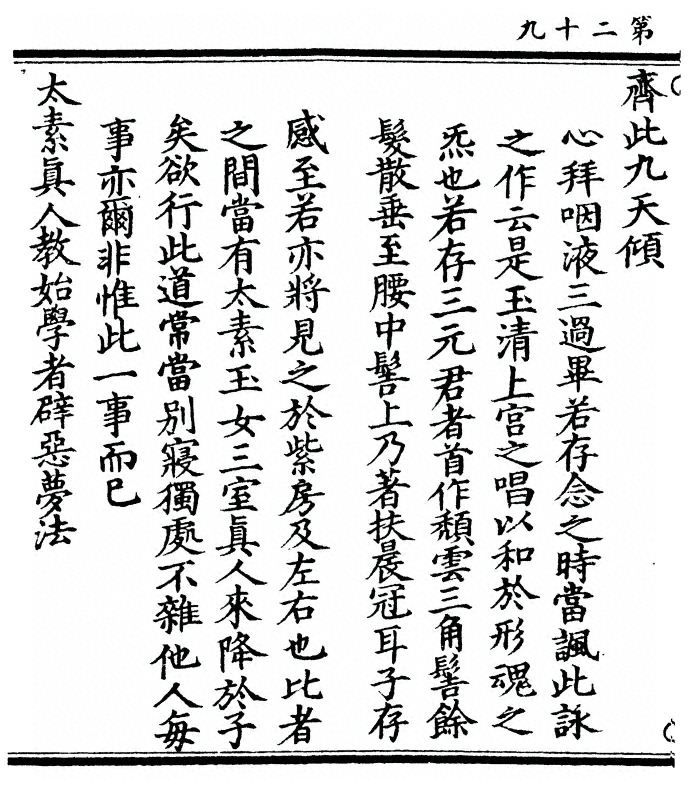 第二十九
齊此九天傾
心拜咽液三過畢若存念之時當諷此詠
之作云是玉清上宮之唱以和於形魂之
炁也若存三元君者首作頹雲三角髻餘
髮散垂至腰中髻上乃著扶晨冠耳子存
感至若亦將見之於紫房及左右也比者
之間當有太素玉女三室眞人來降於子
矣欲行此道常當別寢獨處不雜他人每
事亦爾非惟此一事而已
太素眞人教始學者辟惡夢法